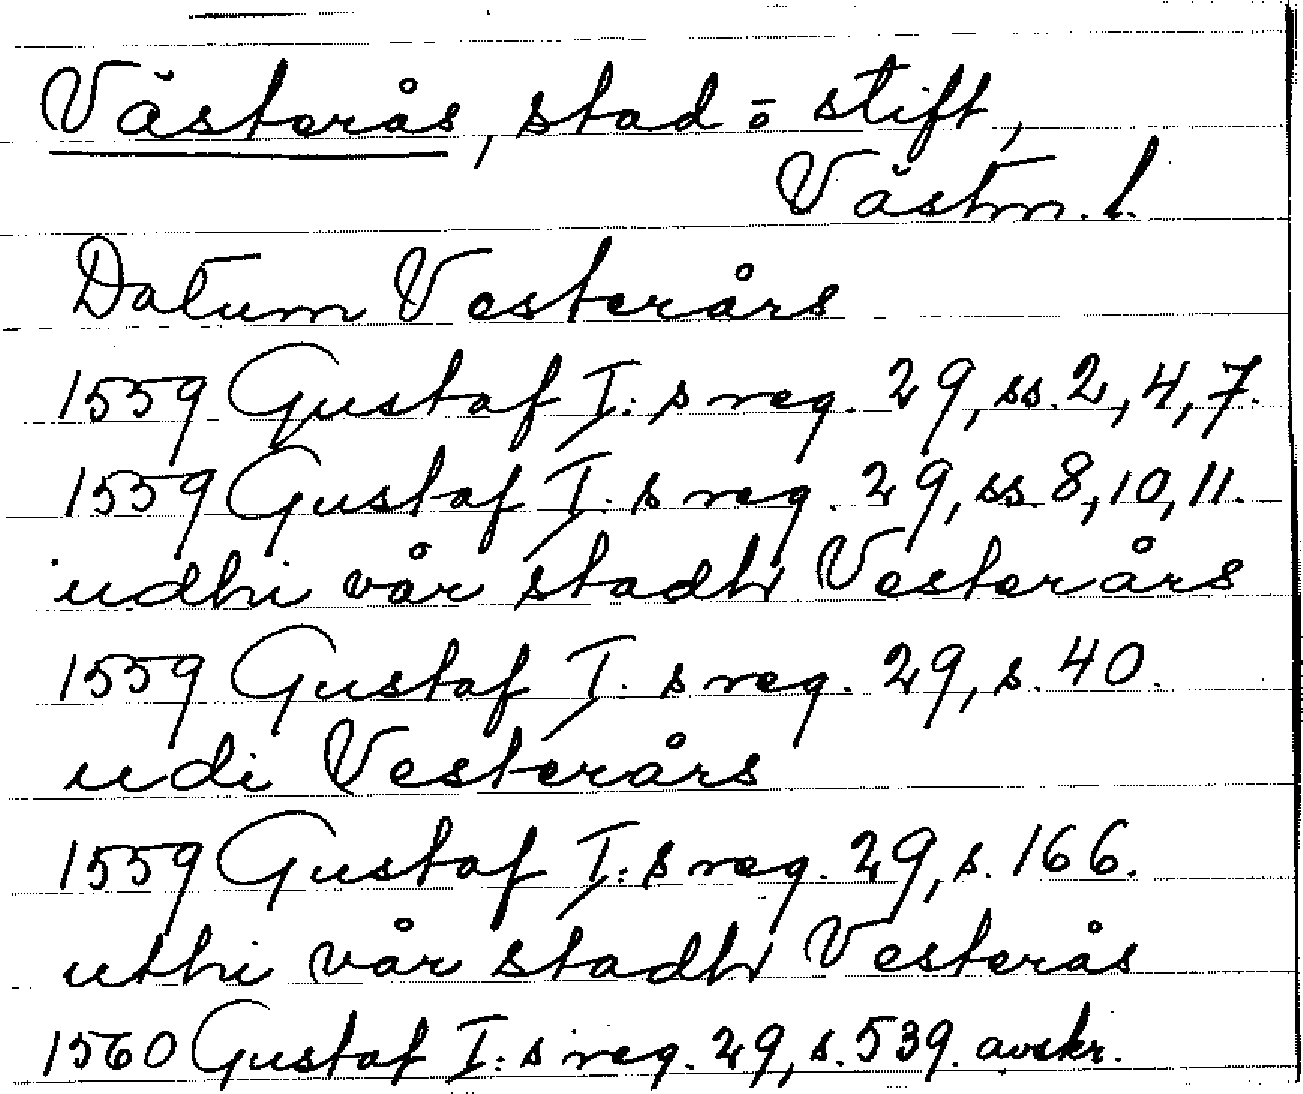 Västerås, stad o. stift,
Västm. l.
Datum Vesterårs
1559 Gustaf I:s reg. 29, ss. 2, 4, 7.
1559 Gustaf I:s reg. 29, ss. 8, 10, 11.
udhi vår stadh Vesterårs
1559 Gustaf I:s reg. 29, s. 40.
udi Vesterårs
1559 Gustaf I:s reg. 29, s. 166.
uthi vår stadh Vesterås
1560 Gustaf I:s reg. 29, s. 539. avskr.